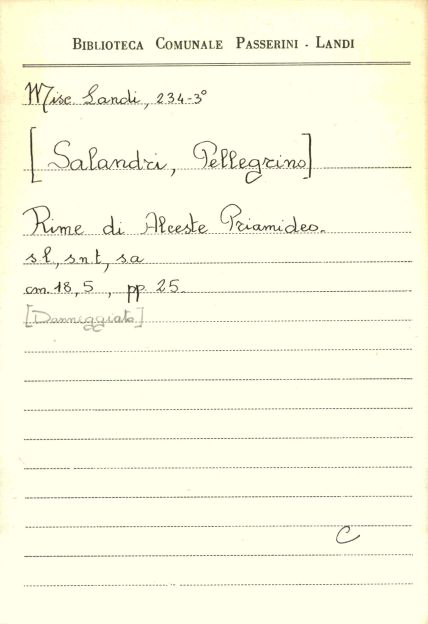 BIBLIOTECA COMUNALE PASSERINI - LANDI
Misc Landi, 234-3°
[Salandri, Pellegrino]
Rime di Alceste Priamideo.
s l, s n t, s a
cm. 18, 5 , pp. 25.
[Danneggiato]
C